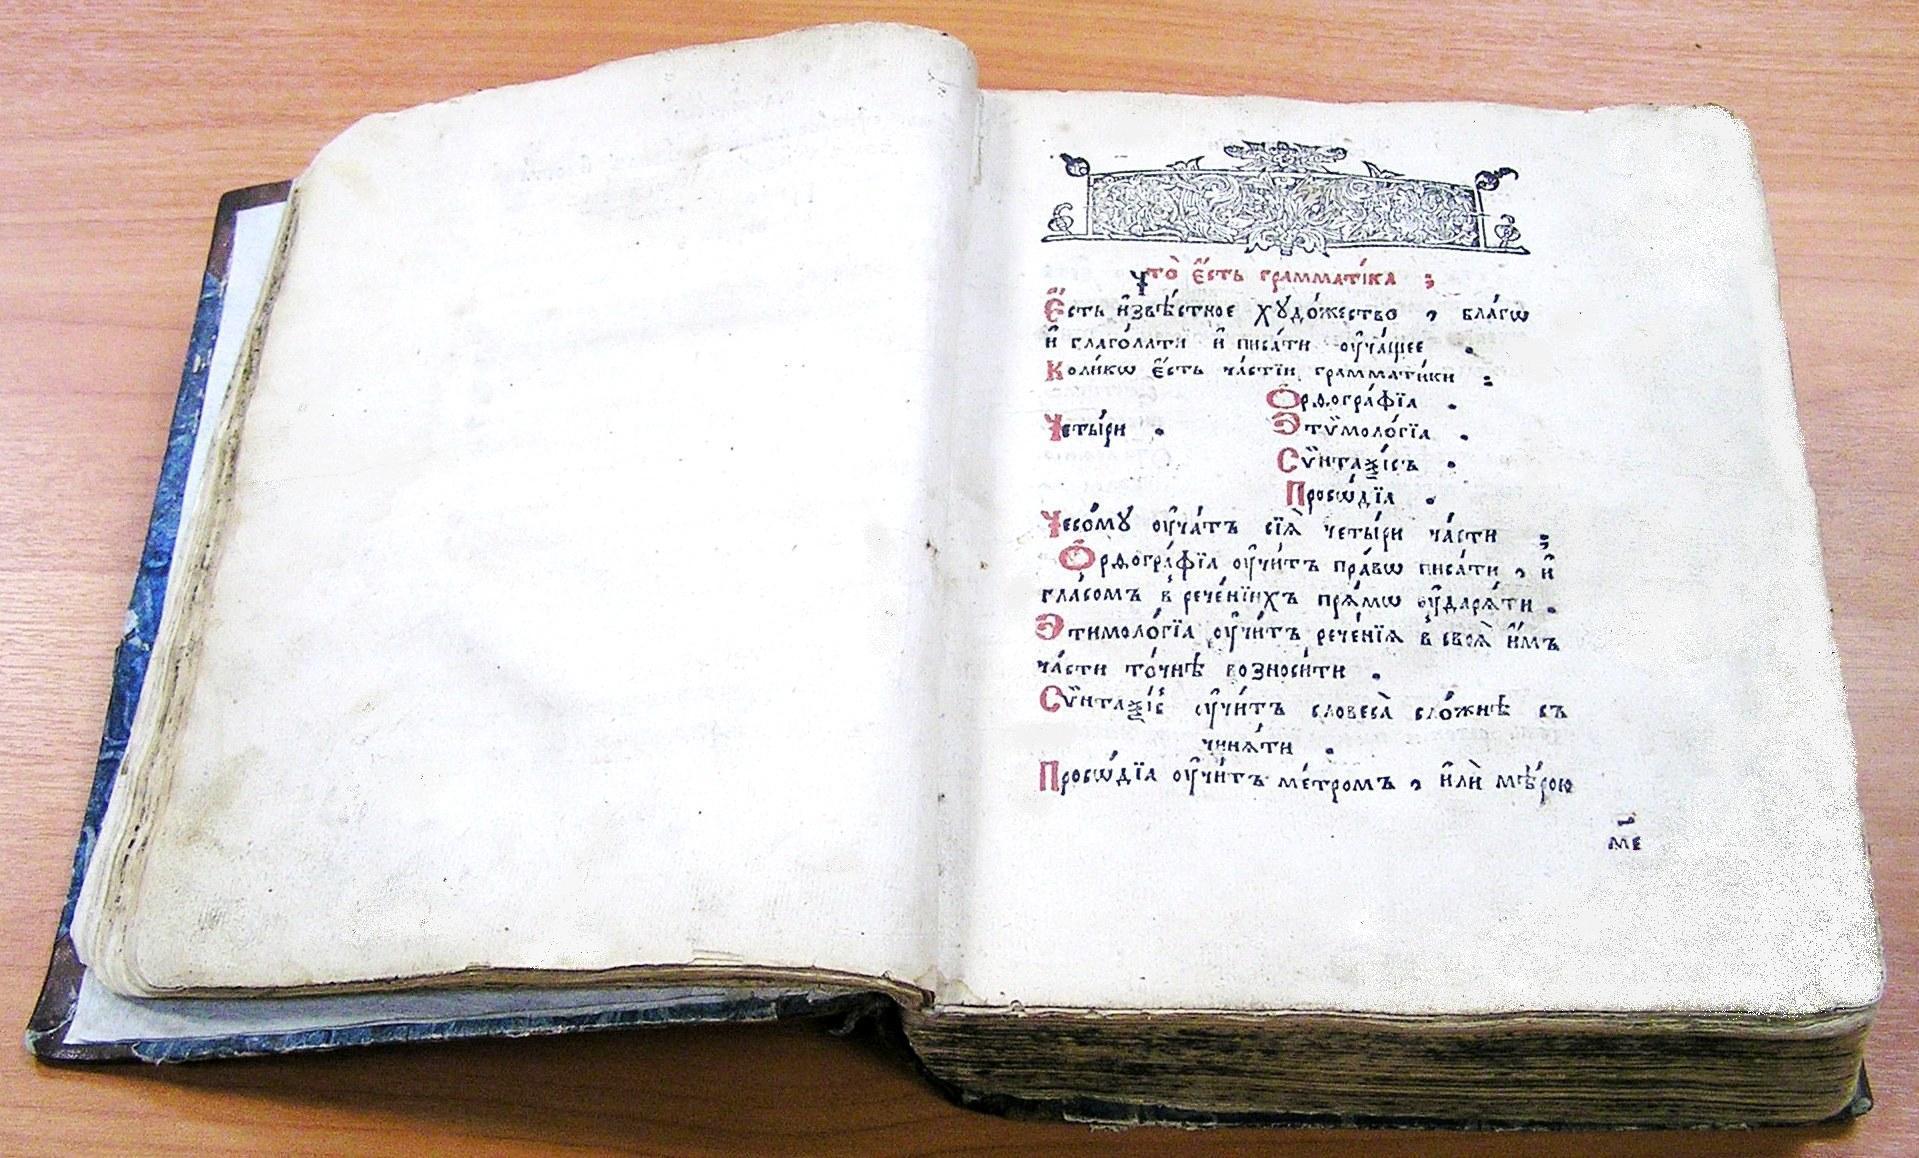 Что̀ є҆́сть грамматі́ка ;
Є҆́сть и҆звѣ́стное хꙋдо́жество , бла́гѡ
и҆ глаго́лати и҆ писа́ти ᲂу҆ча́щее .
Коли́кѡ є҆́сть ча́стїй грамматі́ки ;
Ѻ҆рѳогра́фїа .
Четы́ри . Э҆тѷмоло́гїа .
Сѷ́нтаѯісъ .
Просѡ́дїа .
Чесомꙋ̀ ᲂу҆ча́тъ сїѧ̑ четы́ри ча́сти ;
Ѻ҆рѳогра́фїа ᲂу҆чи́тъ пра́вѡ писа́ти , и҆
гла́сомъ в̾ рече́нїихъ прѧ́мѡ ᲂу҆дарѧ́ти .
Э҆тимоло́гїа ᲂу҆чи́тъ рече́нїѧ в̾ своѧ̑ и҆̀мъ
ча́сти то́чнѣ возноси́ти .
Сѷ́нтаѯіс ᲂу҆чи́тъ словеса̀ сло́жнѣ съ
чинѧ́ти .
Просѡ́дїа ᲂу҆чи́тъ ме́тромъ , и҆лѝ мѣ́рою
ме